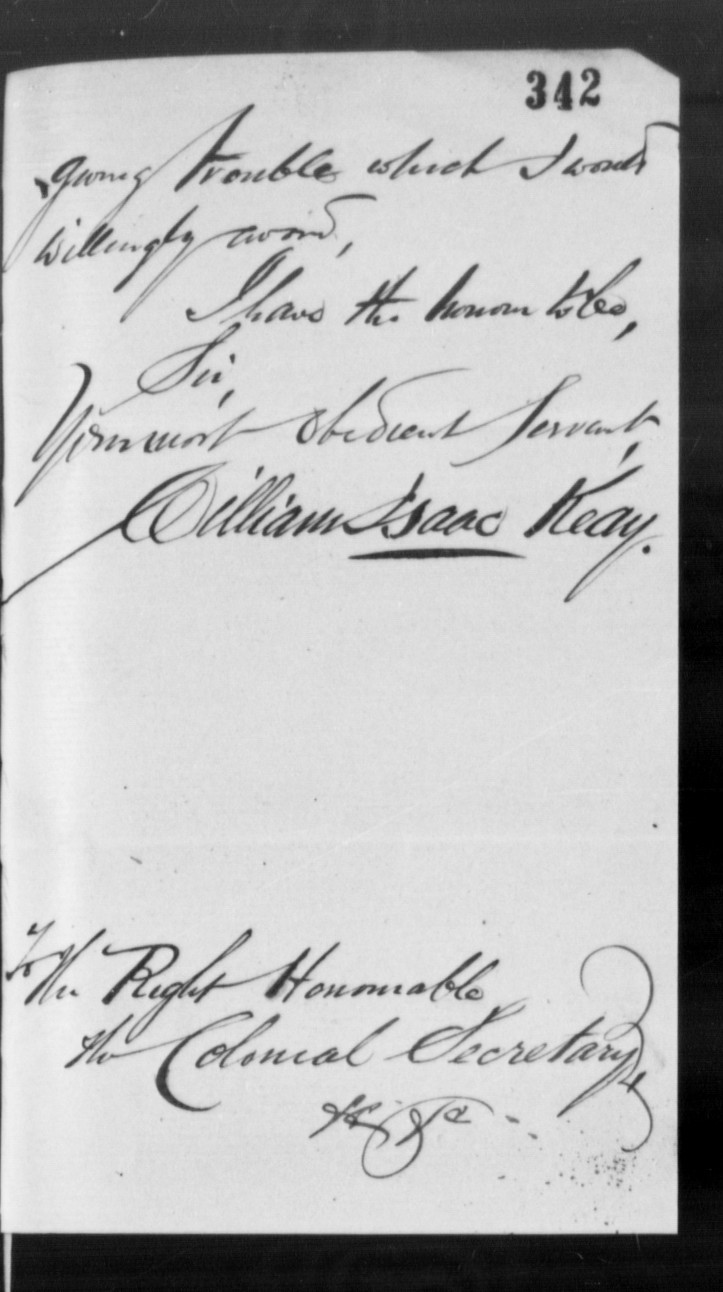 342
giving trouble which I would
willingly avoid,
I have the honour to be,
Sir,
Your most obedient Servant,
William Isaac Keay.
To
the Right Honourable
the Colonial Secretary,
&c &c